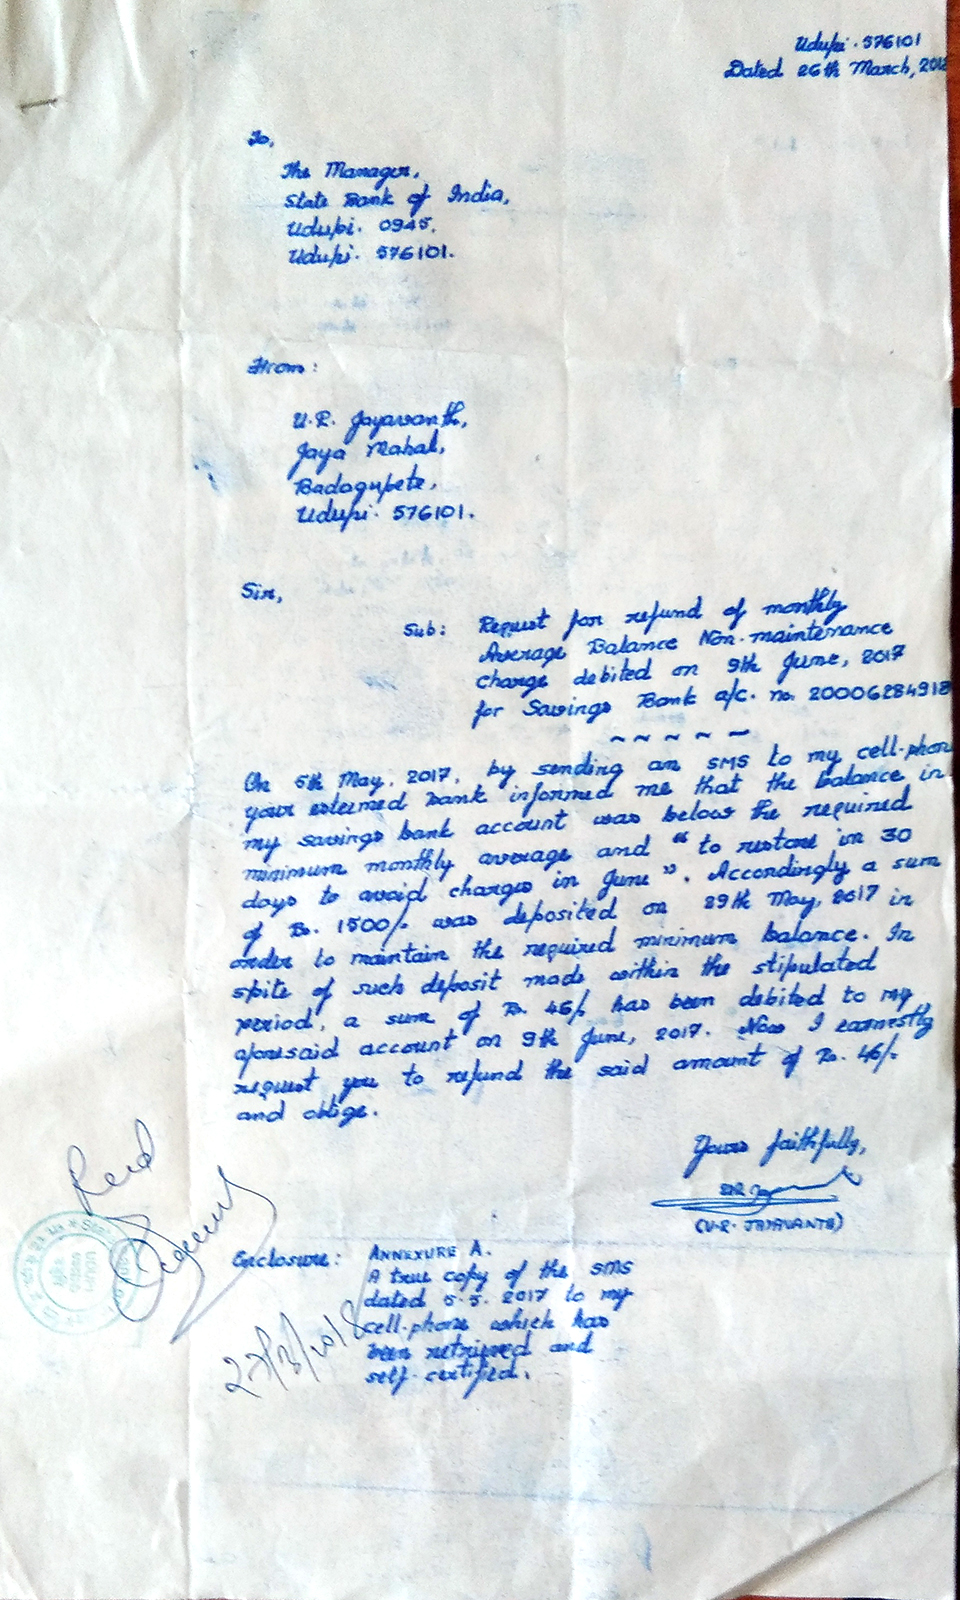 Udupi. 576101
Dated 26th March, 2018
To,
The Manager,
State Bank of India,
Udupi. 0945.
Udupi. 576101.
From:
U.R. Jayavanth,
Jaya Mahal,
Badagupete,
Udupi. 576101.
Sir,
Sub: Request for refund of monthly
Average Balance Non-maintenance
charge debited on 9th June, 2017
for Savings Bank a/c. no. 20006284918
~ ~ ~ ~ ~
On 5th May, 2017, by sending an SMS to my cell-phone
your esteemed bank informed me that the balance in
my savings bank account was below the required
minimum monthly average and "to restore in 30
days to avoid charges in June". Accordingly a sum
of Rs. 1500/- was deposited on 29th May, 2017 in
order to maintain the required minimum balance. In
spite of such deposit made within the stipulated
period, a sum of Rs. 46/- has been debited to my
aforesaid account on 9th June, 2017. Now I earnestly
request you to refund the said amount of Rs. 46/-
and oblige.
Yours faithfully,
(U.R. JAYAVANTH)
Recd
27/3/2018
Enclosure: ANNEXURE A.
A true copy of the SMS
dated 5.5.2017 to my
cell-phone which has
been retrieved and
self-certified.